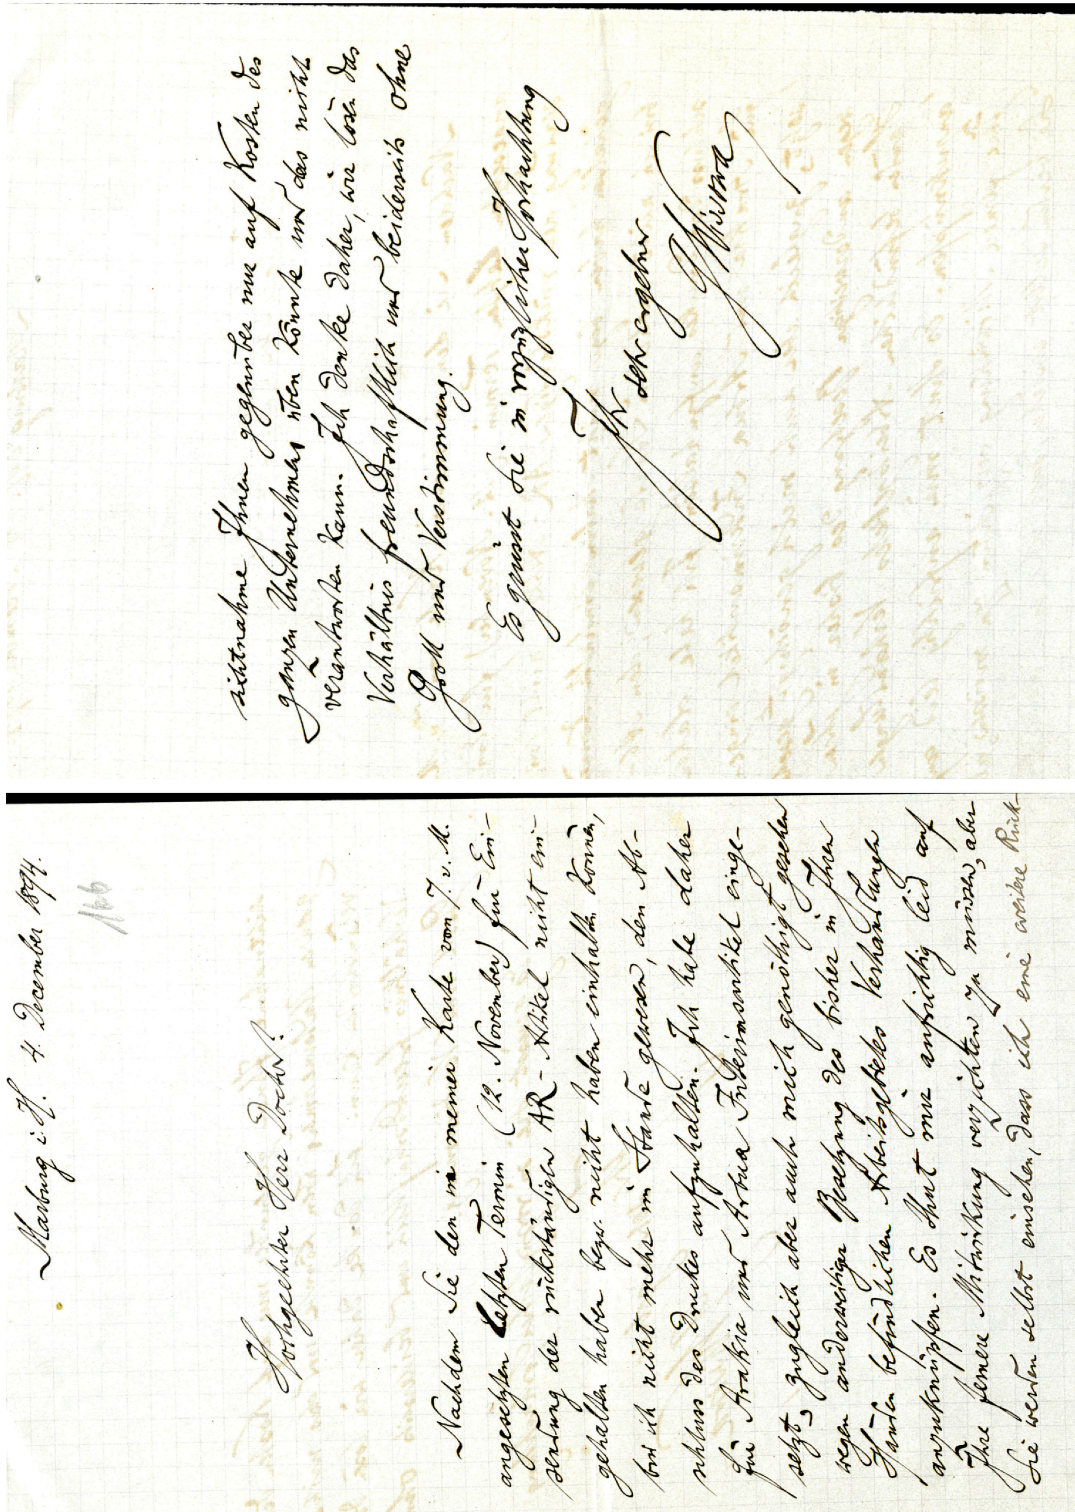 Marburg i. H. 4. December 1894.
166
Hochgeehrter Herr Doctor!
Nachdem Sie den in meiner Karte vom 7. v. M.
angesetzten letzten Termin (12. November) für Ein-
sendung der rückständigen AR-Artikel nicht ein
gehalten haben bezw. nicht haben einhalten können,
bin ich nicht mehr im Stande gewesen, den Ab-
schluss des Druckes aufzuhalten. Ich habe daher
für Arabia und Arksia Interimsartikel einge-
setzt, zugleich aber auch mich genöthigt gesehen
wegen anderweitiger Besetzung des bisher in Ihren
Händen befindlichen Arbeitsgebietes Verhandlungen
anzuknüpfen. Es thut mir aufrichtig leid auf
Ihre fernere Mitwirkung verzichten zu müssen, aber
Sie werden selbst einsehen, dass ich eine weitere Rück-
sichtnahme Ihnen gegenüber nur auf Kosten des
ganzen Unternehmens üben könnte und das nicht
verantworten kann. Ich denke daher, wir lösen das
Verhältnis freundschaftlich und beiderseits ohne
Groll und Verstimmung.
Es grüsst Sie in vorzüglicher Hochachtung
Ihr sehr ergebner
GWissowa